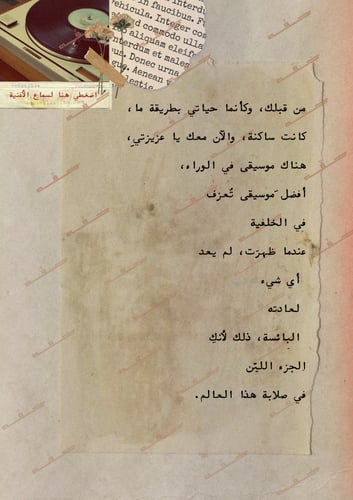 vehicula. Integer
in faucibus.
commodo
aliquam
Donec
Aenean
اضغطي هنا لسماع الأغنية
من قبلك، وكأنما حياتي بطريقة ما،
كانت ساكنة، والآن معك يا عزيزتي،
هناك موسيقى في الوراء،
أفضل موسيقى تُعزف
في الخلفية
عندما ظهرَت، لم يعد
أي شيء
لعادته
البائسة، ذلك لأنكِ
الجزء الليّن
في صلابة هذا العالم.